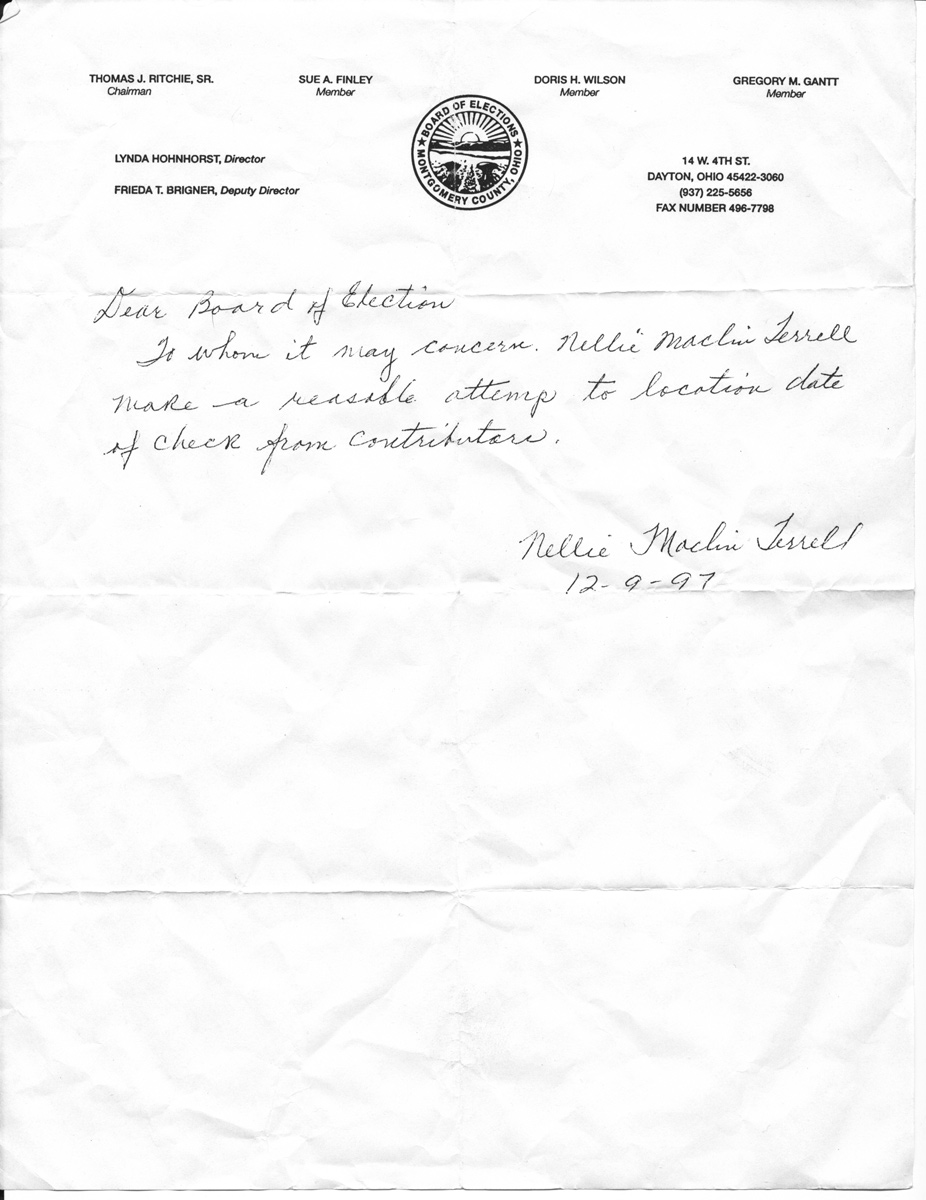 THOMAS J. RITCHIE, SR. SUE A. FINLEY DORIS H. WILSON GREGORY M. GANTT
Chairman Member Member Member
BOARD OF ELECTIONS
MONTGOMERY COUNTY, OHIO
LYNDA HOHNHORST, Director
FRIEDA T. BRIGNER, Deputy Director
14 W. 4TH ST.
DAYTON, OHIO 45422-3060
(937) 225-5656
FAX NUMBER 496-7798
Dear Board of Election
To whom it may concern. Nellie Maclin Terrell
make a reasable attemp to location date
of check from contributors.
Nellie Maclin Terrell
12-9-97